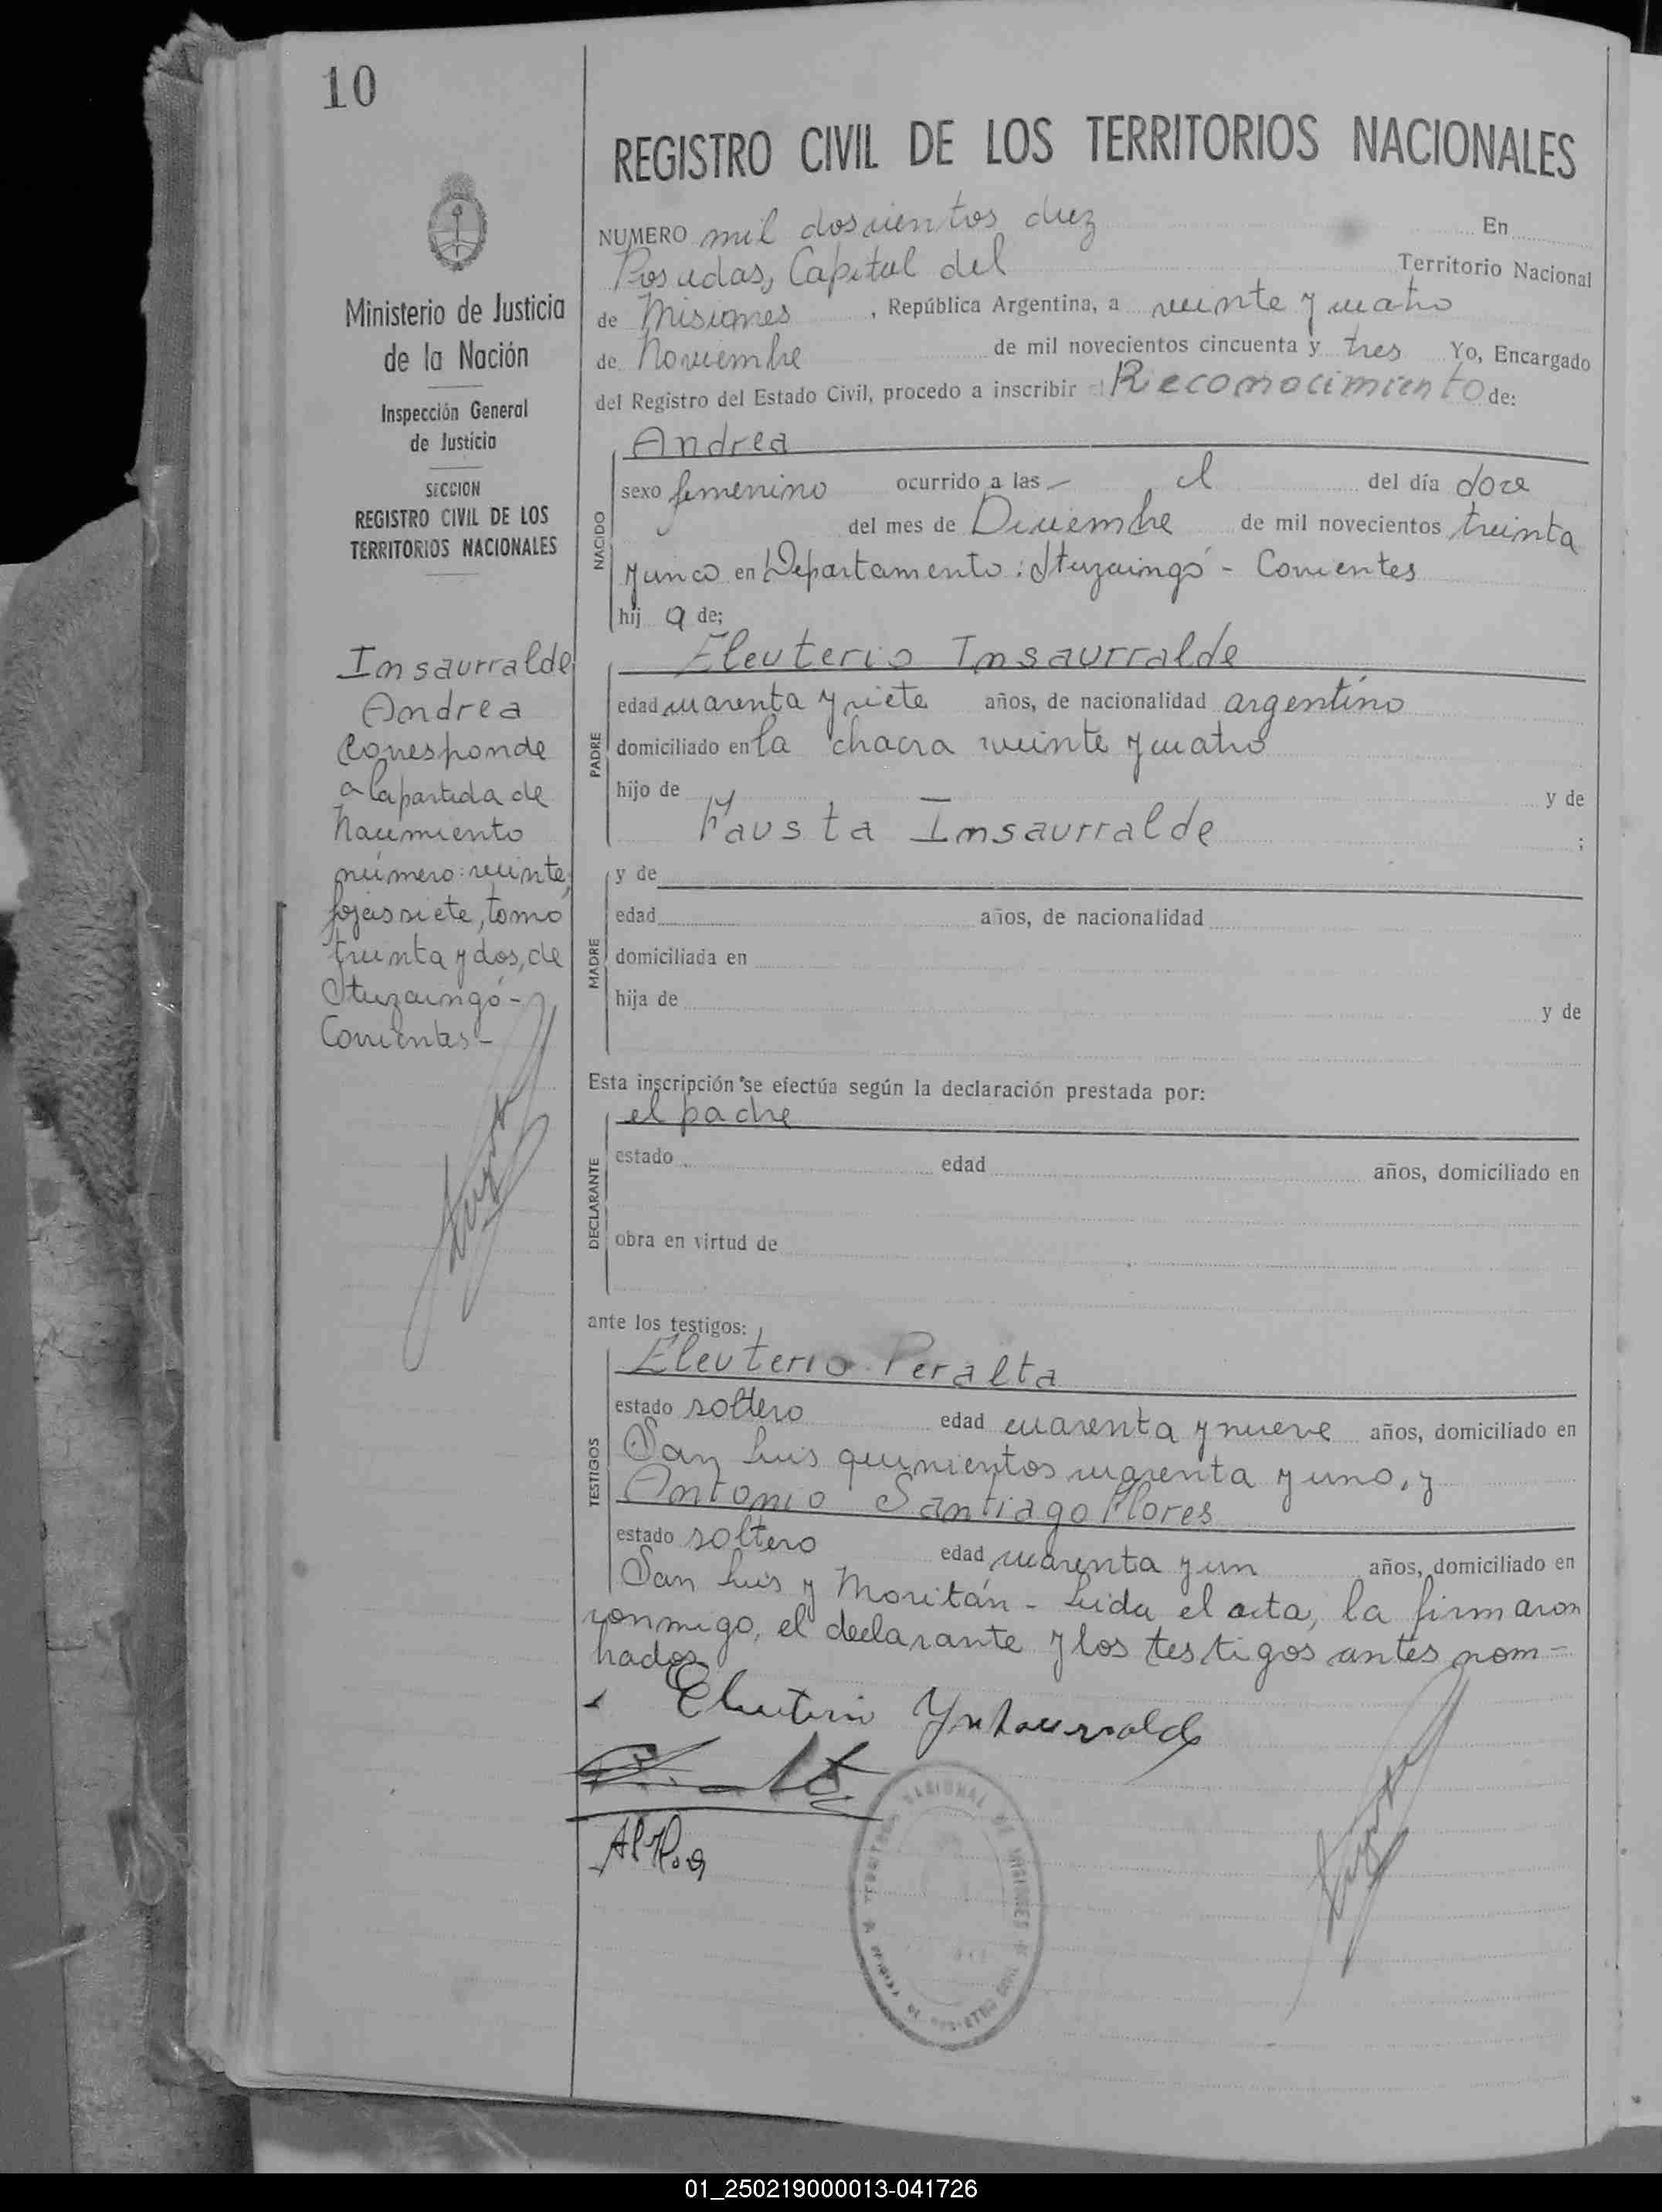 10
REGISTRO CIVIL DE LOS TERRITORIOS NACIONALES
NUMERO mil doscientos diez En
Posadas, Capital del Territorio Nacional
de Misiones, República Argentina, a veinte y cuatro
de Noviembre de mil novecientos cincuenta y tres Yo, Encargado
del Registro del Estado Civil, procedo a inscribir el Reconocimiento de:
Ministerio de Justicia
de la Nación
Inspección General
de Justicia
SECCION
REGISTRO CIVIL DE LOS
TERRITORIOS NACIONALES
Insaurralde
Andrea
Corresponde
a la partida de
Nacimiento
número: veinte,
fojas siete, tomo
treinta y dos, de
Ituzaingó-
Corrientes-
NACIDO
Andrea
sexo femenino ocurrido a las - el del día doce
del mes de Diciembre de mil novecientos treinta
y cinco en Departamento: Ituzaingó - Corrientes
hij a de;
PADRE
Eleuterio Insaurralde
edad cuarenta y siete años, de nacionalidad argentino
domiciliado en la chacra veinte y cuatro
hijo de y de
Fausta Insaurralde ;
MADRE
y de
edad años, de nacionalidad
domiciliada en
hija de y de
Esta inscripción se efectúa según la declaración prestada por:
DECLARANTE
el padre
estado edad años, domiciliado en
obra en virtud de
ante los testigos:
TESTIGOS
Eleuterio Peralta
estado soltero edad cuarenta y nueve años, domiciliado en
San Luis quinientos cuarenta y uno, y
Antonio Santiago Flores
estado soltero edad cuarenta y un años, domiciliado en
San Luis y Moritán - Leida el acta, la firmaron
conmigo, el declarante y los testigos antes nom-
brados
Eleuterio Ynsaurralde
TERRITORIO NACIONAL DE MISIONES
01_250219000013-041726